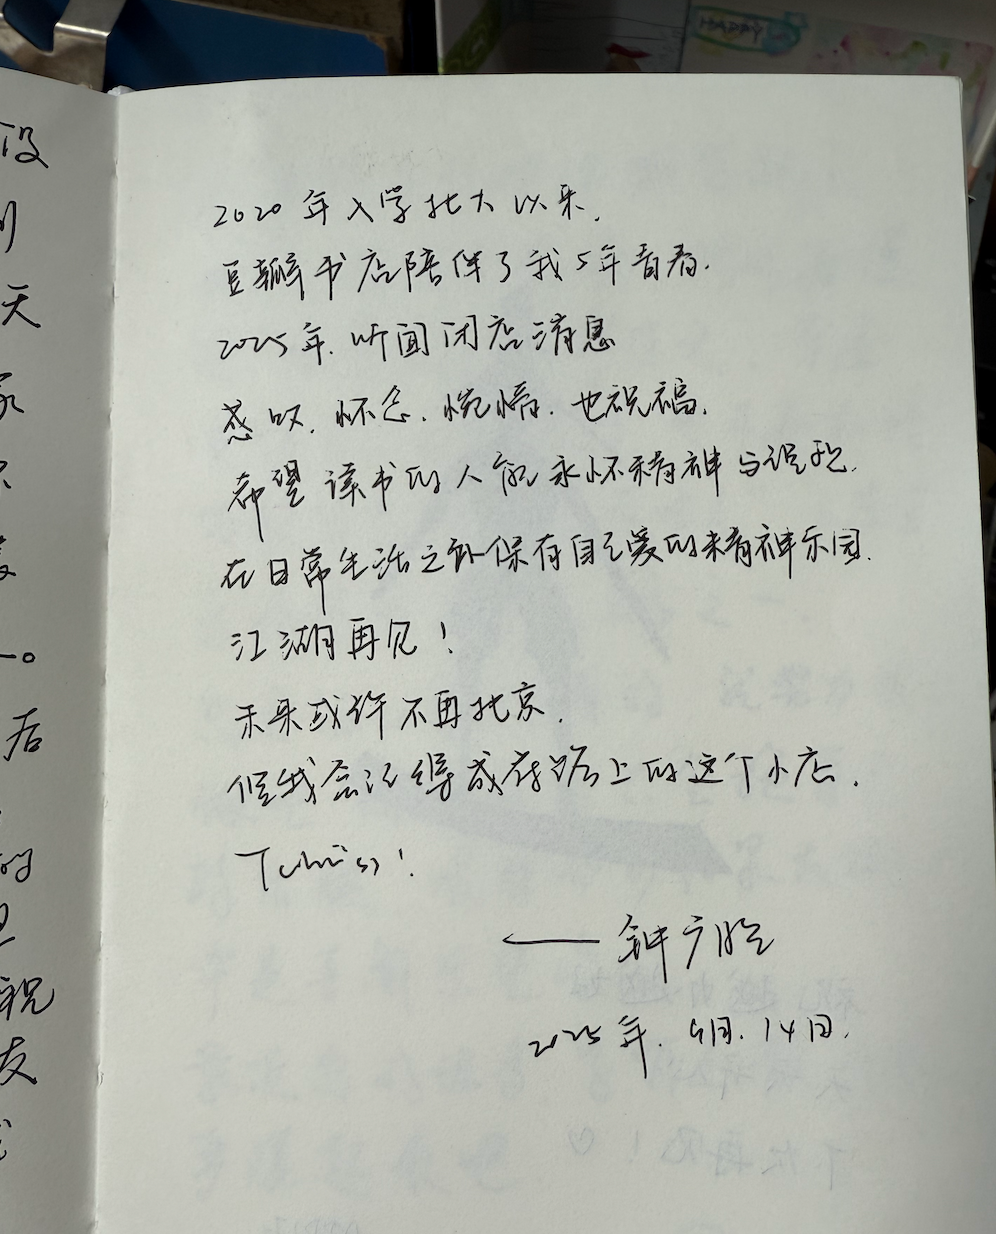 2020年入学北大以来,
豆瓣书店陪伴了我5年青春.
2025年.听闻闭店消息
感叹.怀念.惋惜.也祝福.
希望读书的人能永怀精神与理想.
在日常生活之外保存自己爱的精神乐园.
江湖再见!
未来或许不再北京.
但我会记得成府路上的这个小店.
——钟
2025年.9月.14日.
设
天
后
祝
友